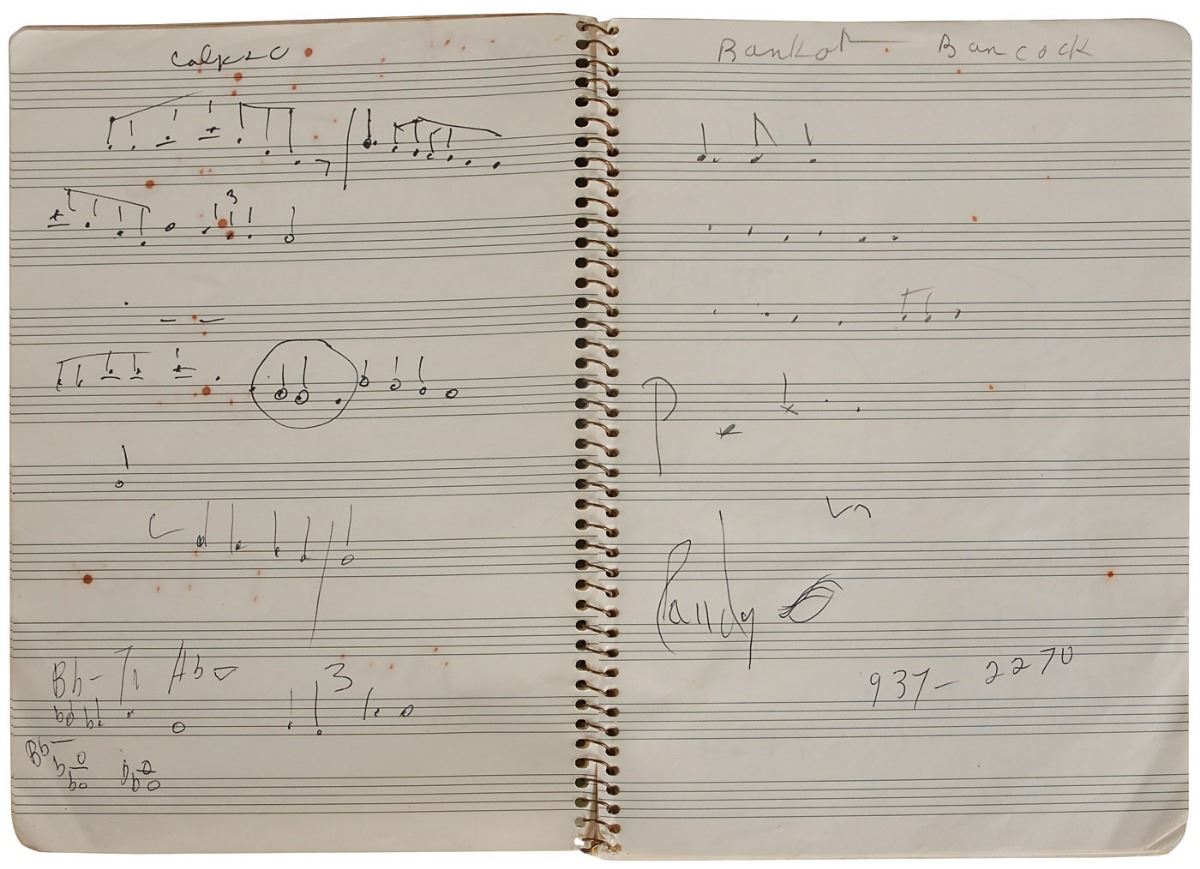 Calypso
3
Bb- Ab
3
Bb-
Bankok Bancock
Randy
937-2270